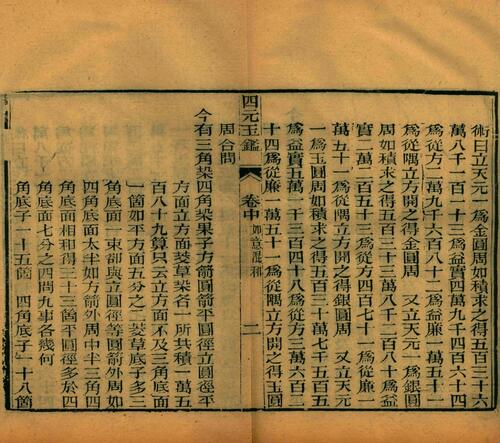 術曰立天元一爲金圓周如積求之得五百三十六
萬八千一百一十三爲益實四萬九千四百六十四
爲從方一萬九千六百八十二爲益廉一萬五十一
爲從隅立方開之得金圓周 又立天元一爲銀圓
周如積求之得五百三十萬八千二百八十爲益
實二萬一百三爲從方四百七十一爲從廉一
萬五十一爲從隅立方開之得銀圓周 又立天元
一爲玉圓周如積求之得五百三十萬七千五百五
爲益實五萬一千三百四十八爲從方三萬六百二
十四爲從廉一萬五十一爲從隅立方開之得玉圓
周合問
四元玉鑑 卷中 如意混和 二
今有三角垜四角垜果子方箭圓箭平圓徑立圓徑平
方面立方面茭草垜各一所共積一萬五
百八十九算只云立方面不及三角底面
一箇如平方面五分之二茭草底子多三
角底面一束卻與立圓徑等圓箭外周如
四角底面太半如方箭外周中半三角四
角底面相和得三十三箇平圓徑多於四
角底面七分之四問九事各幾何
角底子一十五箇 四角底子一十八箇